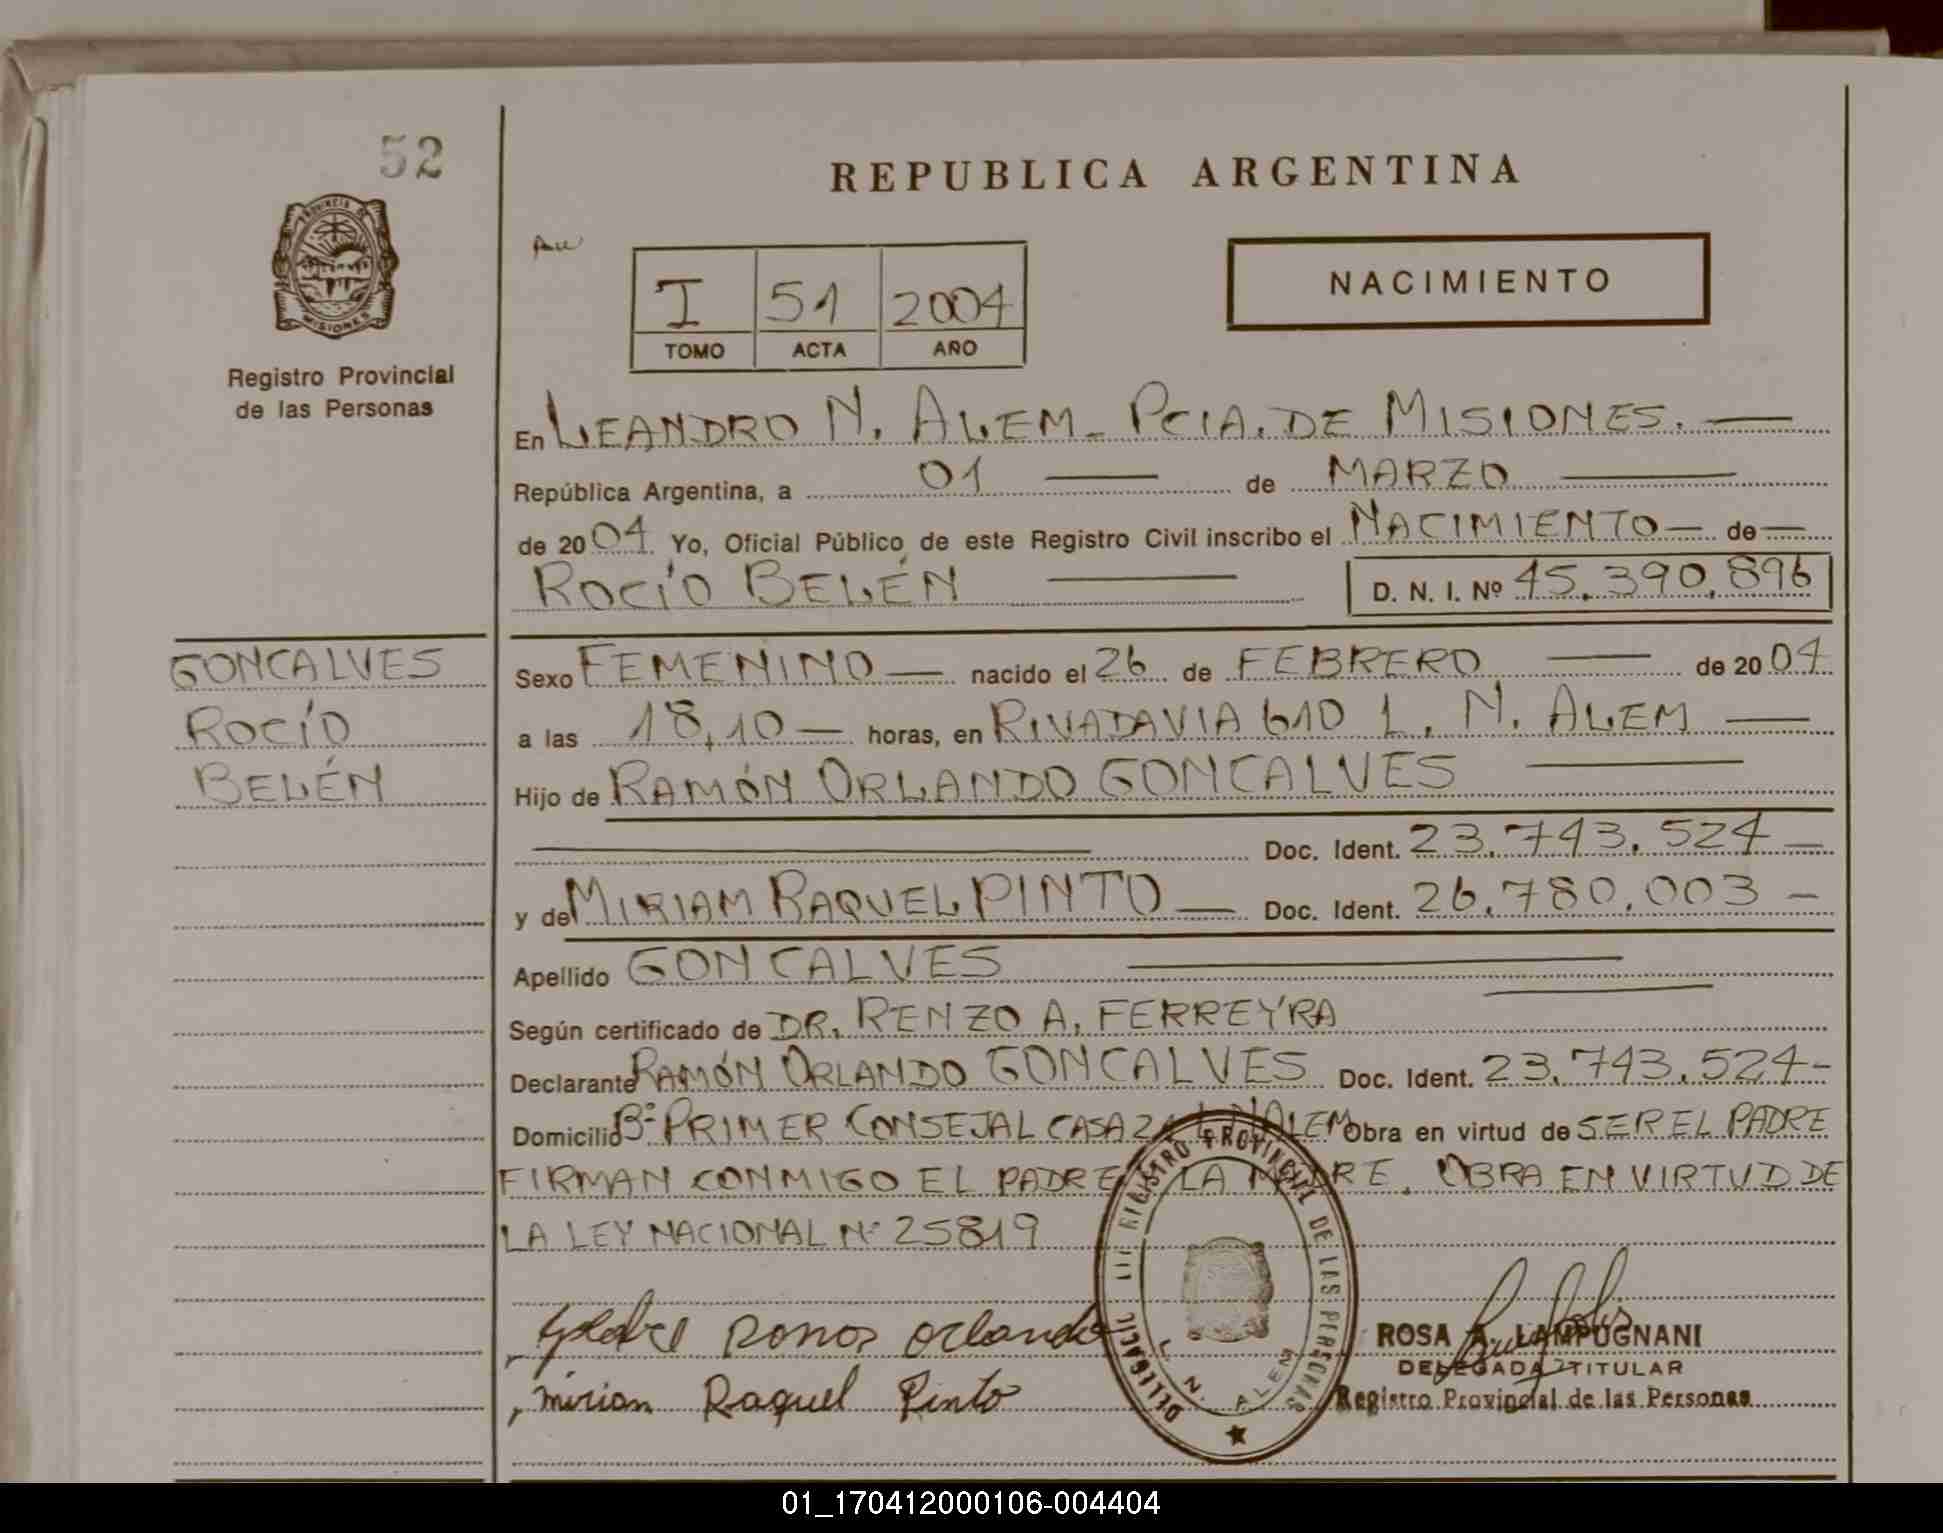 52
REPUBLICA ARGENTINA
PROVINCIA DE
MISIONES
NACIMIENTO
I 51 2004
TOMO ACTA AÑO
Registro Provincial
de las Personas
En LEANDRO N. ALEM - PCIA. DE MISIONES.
República Argentina, a 01 de MARZO
de 2004 Yo, Oficial Público de este Registro Civil inscribo el NACIMIENTO de
ROCÍO BELÉN D. N. I. Nº 45.390.896
GONCALVES
ROCÍO
BELÉN
Sexo FEMENINO nacido el 26 de FEBRERO de 2004
a las 18,10 horas, en RIVADAVIA 610 L. N. ALEM
Hijo de RAMÓN ORLANDO GONCALVES
Doc. Ident. 23.743.524
y de MIRIAM RAQUEL PINTO Doc. Ident. 26.780.003
Apellido GONCALVES
Según certificado de DR. RENZO A. FERREYRA
Declarante RAMÓN ORLANDO GONCALVES Doc. Ident. 23.743.524
Domicilio Bº PRIMER CONSEJAL CASA L N ALEM Obra en virtud de SER EL PADRE
FIRMAN CONMIGO EL PADRE LA MADRE. OBRA EN VIRTUD DE
LA LEY NACIONAL Nº 25819
REGISTRO PROVINCIAL DE LAS PERSONAS
L. N. ALEM
Orlando
ROSA A. LAMPUGNANI
DELEGADA TITULAR
mirian Raquel Pinto
Registro Provincial de las Personas
01_170412000106-004404